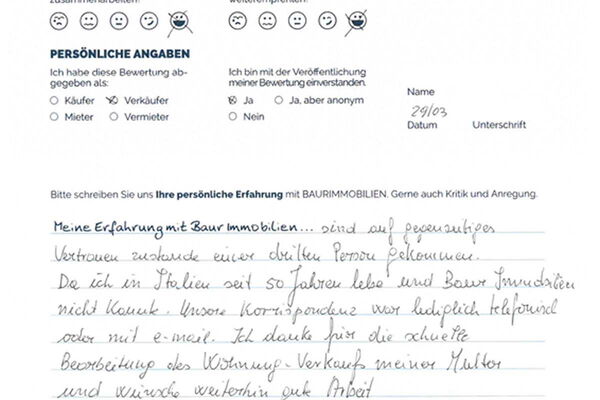 zusammenarbeiten?
weiterempfehlen?
PERSÖNLICHE ANGABEN
Ich habe diese Bewertung ab-
gegeben als:
Käufer Verkäufer
Mieter Vermieter
Ich bin mit der Veröffentlichung
meiner Bewertung einverstanden.
Ja Ja, aber anonym
Nein
Name
29/03
Datum Unterschrift
Bitte schreiben Sie uns Ihre persönliche Erfahrung mit BAURIMMOBILIEN. Gerne auch Kritik und Anregung.
Meine Erfahrung mit Baur Immobilien... sind auf gegenseitiges
Vertrauen zustande einer dritten Person gekommen.
Da ich in Italien seit 50 Jahren lebe und Baur Immobilien
nicht kannte. Unsere Korrispondenz war lediglich telefonisch
oder mit e-mail. Ich danke für die schnelle
Bearbeitung des Wohnung-Verkaufs meiner Mutter
und wünsche weiterhin gute Arbeit